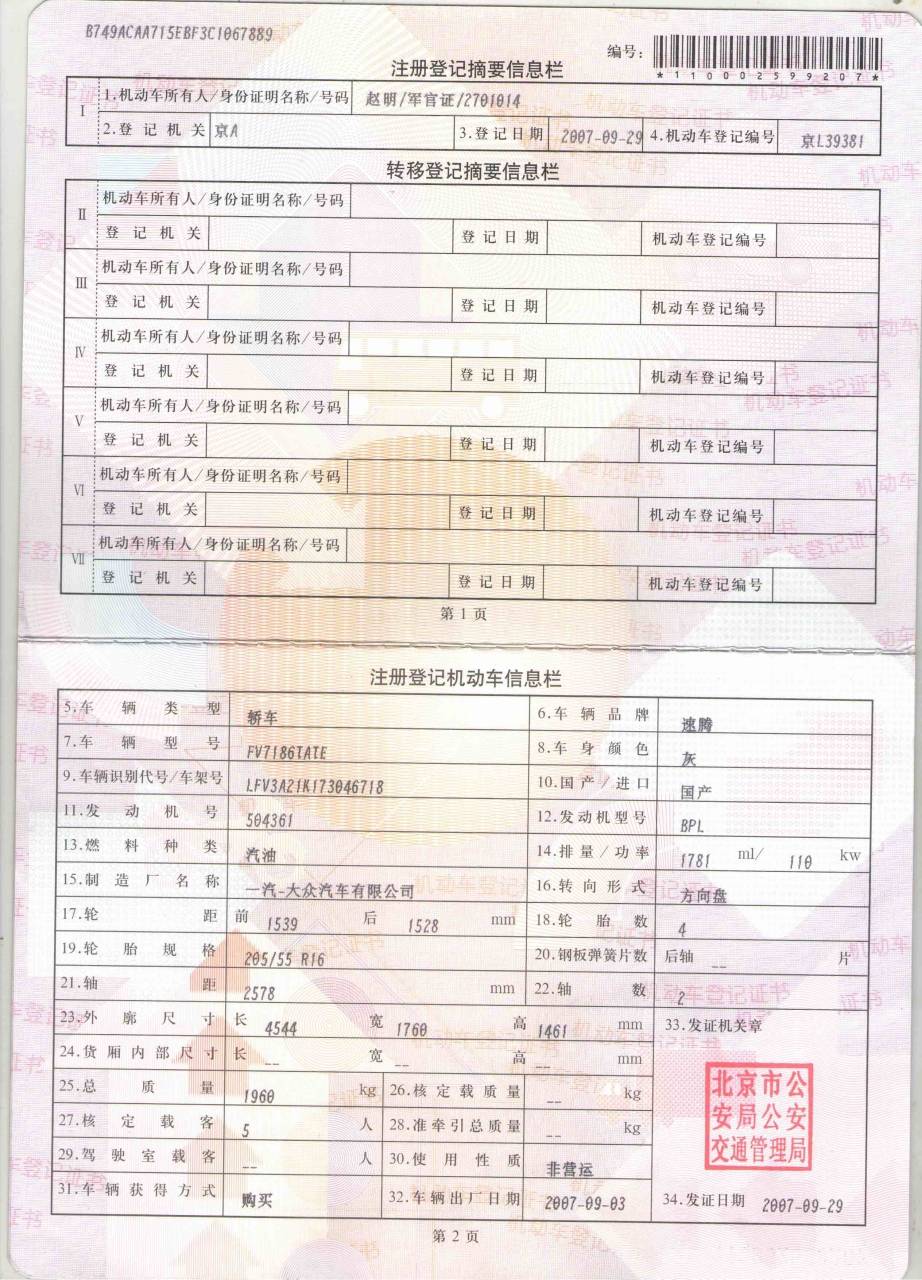 B749ACAA715EBF3C1067889
编号:
*110002599207*
注册登记摘要信息栏
I 1.机动车所有人/身份证明名称/号码 赵明/军官证/2701014
2.登记机关 京A 3.登记日期 2007-09-29 4.机动车登记编号 京L39381
转移登记摘要信息栏
II 机动车所有人/身份证明名称/号码
登记机关 登记日期 机动车登记编号
III 机动车所有人/身份证明名称/号码
登记机关 登记日期 机动车登记编号
IV 机动车所有人/身份证明名称/号码
登记机关 登记日期 机动车登记编号
V 机动车所有人/身份证明名称/号码
登记机关 登记日期 机动车登记编号
VI 机动车所有人/身份证明名称/号码
登记机关 登记日期 机动车登记编号
VII 机动车所有人/身份证明名称/号码
登记机关 登记日期 机动车登记编号
第1页
注册登记机动车信息栏
5.车辆类型 轿车 6.车辆品牌 速腾
7.车辆型号 FV7186TATE 8.车身颜色 灰
9.车辆识别代号/车架号 LFV3A21K173046718 10.国产/进口 国产
11.发动机号 504361 12.发动机型号 BPL
13.燃料种类 汽油 14.排量/功率 1781 ml/ 110 kw
15.制造厂名称 一汽-大众汽车有限公司 16.转向形式 方向盘
17.轮距 前 1539 后 1528 mm 18.轮胎数 4
19.轮胎规格 205/55 R16 20.钢板弹簧片数 后轴 -- 片
21.轴距 2578 mm 22.轴数 2
23.外廓尺寸 长 4544 宽 1760 高 1461 mm 33.发证机关章
24.货厢内部尺寸 长 -- 宽 -- 高 -- mm
25.总质量 1960 kg 26.核定载质量 -- kg
27.核定载客 5 人 28.准牵引总质量 -- kg
29.驾驶室载客 -- 人 30.使用性质 非营运
31.车辆获得方式 购买 32.车辆出厂日期 2007-09-03 34.发证日期 2007-09-29
北京市公
安局公安
交通管理局
第2页